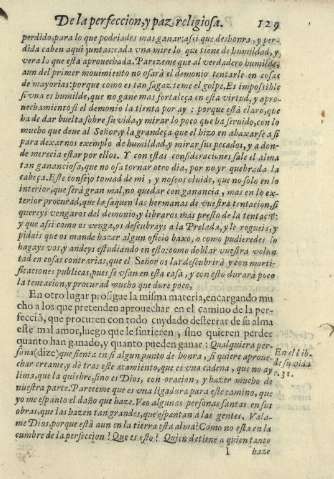 De la perfeccion, y paz religiosa. 129
perdido, para lo que podriades mas ganar: assi que deshonra, y per-
dida caben aqui juntas: cada vna mire lo que tiene de humildad, y
vera lo que està aprouechada. Pareceme que al verdadero humilde
aun del primer mouimiento no osarà el demonio tentarle en cosas
de mayorias: porque como es tan sagaz, teme el golpe. Es impossible
si vna es humilde, que no gane mas fortaleza en esta virtud, y apro-
uechamiento si el demonio la tienta por ay: porque està claro, que
ha de dar buelta sobre su vida, y mirar lo poco que ha seruido, con lo
mucho que deue al Señor, y la grandeza que el hizo en abaxarse à si
para dexarnos exemplo de humildad, y mirar sus pecados, y a don-
de merecia estar por ellos. Y con estas consideraciones sale el alma
tan gananciosa, que no osa tornar otro dia, por no yr quebrada la
cabeça. Este consejo tomad de mi, y no se os oluide, que no solo en lo
interior, que serà gran mal, no quedar con ganancia, mas en lo ex-
terior procurad, que la saquen las hermanas de vuestra tentacion, si
quereys vengaros del demonio, y libraros mas presto de la tentaciõ:
y que assi como os venga, os descubrays a la Prelada, y le rogueis, y
pidais que os mande hazer algun oficio baxo, o como pudieredes lo
hagays vos, y andeys estudiando en esto: como doblar vuestra volun-
tad en cosas contrarias, que el Señor os las descubrirà y con morti-
ficaciones publicas, pues se vsan en esta casa, y con esto durarà poco
la tentacion, y procurad mucho que dure poco.
En otro lugar prosigue la misma materia, encargando mu
cho a los que pretenden aprouechar en el camino de la perfe-
cciõ, que procuren con todo cuydado desterrar de su alma
este mal amor, luego que le sintieren, sino quieren perder
quanto han ganado, y quanto pueden ganar: Qualquiera per-
sona (dize) que sienta en si algun punto de honra, si quiere aproue-
char creame, y dè tras este atamiento, que es vna cadena, que no ay
lima, que la quiebre, sino es Dios, con oracion, y hazer mucho de
nuestra parte. Pareceme que es vna ligadura para este camino, que
yo me espanto el daño que haze. Veo algunas personas santas en sus
obras, que las hazen tan grandes, que espantan a las gentes. Vala-
me Dios, porque està aun en la tierra esta alma? Como no està en la
cumbre de la perfeccion? Que es esto? Quien detiene a quien tanto
I haze
En el lib.
de su vida
c. 31.